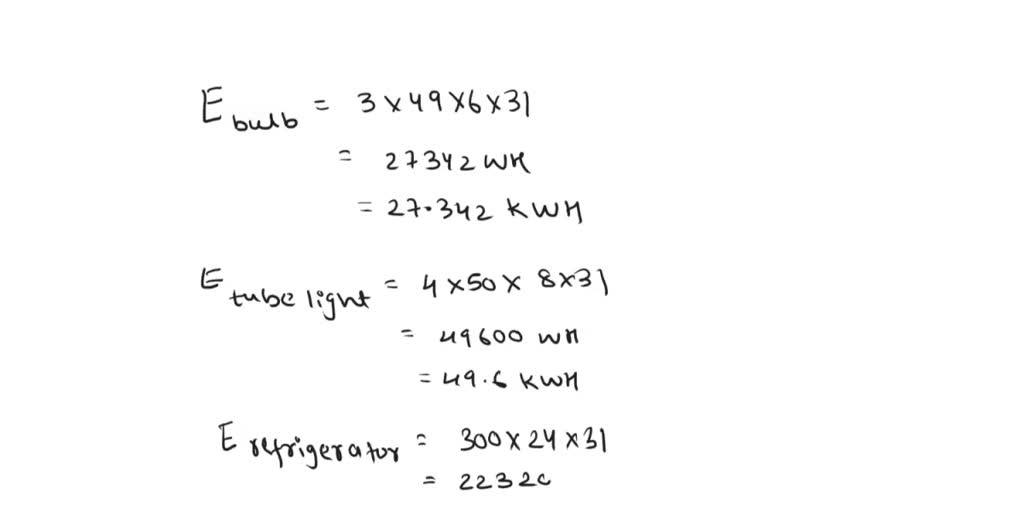 E bulb = 3 x 49 x 6 x 31
= 27342 WH
= 27.342 KWH
E tube light = 4 x 50 x 8 x 31
= 49600 WH
= 49.6 KWH
E refrigerator = 300 x 24 x 31
= 22320